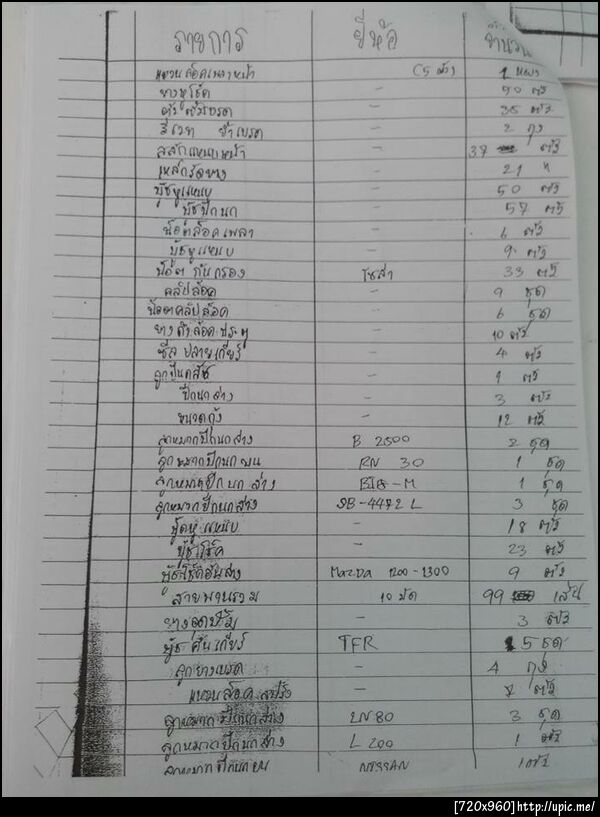 รายการ ยี่ห้อ จำนวน
แหวนล็อคเพลาหน้า (5 ตัว) 1 แผง
ยางหูโช๊ค - 50 ตัว
- 35 ตัว
- 2 ถุง
37 ตัว
เหล็กรัดยาง - 21
บู๊ชหูแหนบ - 50 ตัว
บู๊ชปีกนก - 57 ตัว
น๊อตล็อคเพลา - 6 ตัว
บู๊ชหูแหนบ - 9 ตัว
น๊อต ก้นกรอง โซล่า 33 ตัว
คลิปล็อค - 9 ชุด
น๊อตคลิปล็อค - 6 ชุด
ยางดำล็อคประตู - 10 ตัว
ซีล ปลายเกียร์ - 4 ตัว
ลูกปืนคลัช - 1 ตัว
ปีกนกล่าง - 3 ตัว
ขนวดกุ้ง - 12 ตัว
ลูกหมากปีกนกล่าง B 2500 2 ชุด
ลูกหมากปีกนกบน RN 30 1 ชุด
ลูกหมากปีกนกล่าง BIG-M 1 ชุด
ลูกหมากปีกนกล่าง SB-4472 L 3 ชุด
บู๊ชหูแหนบ - 18 ตัว
บู๊ชโช๊ค - 23 ตัว
Mazda 1200-1300 9 ตัว
สายพานรวม 10 มัด 99 เส้น
ยางอุดปั๊ม - 3 ตัว
บู๊ช คันเกียร์ TFR 5 ชุด
ลูกยางเบรค - 4 ถุง
แหวนล็อค สปริง - 7 ตัว
ลูกหมากปีกนกล่าง LN80 3 ชุด
ลูกหมากปีกนกล่าง L 200 1 ตัว
ลูกหมากปีกนกบน NISSAN 1 ตัว
[720x960] http://upic.me/